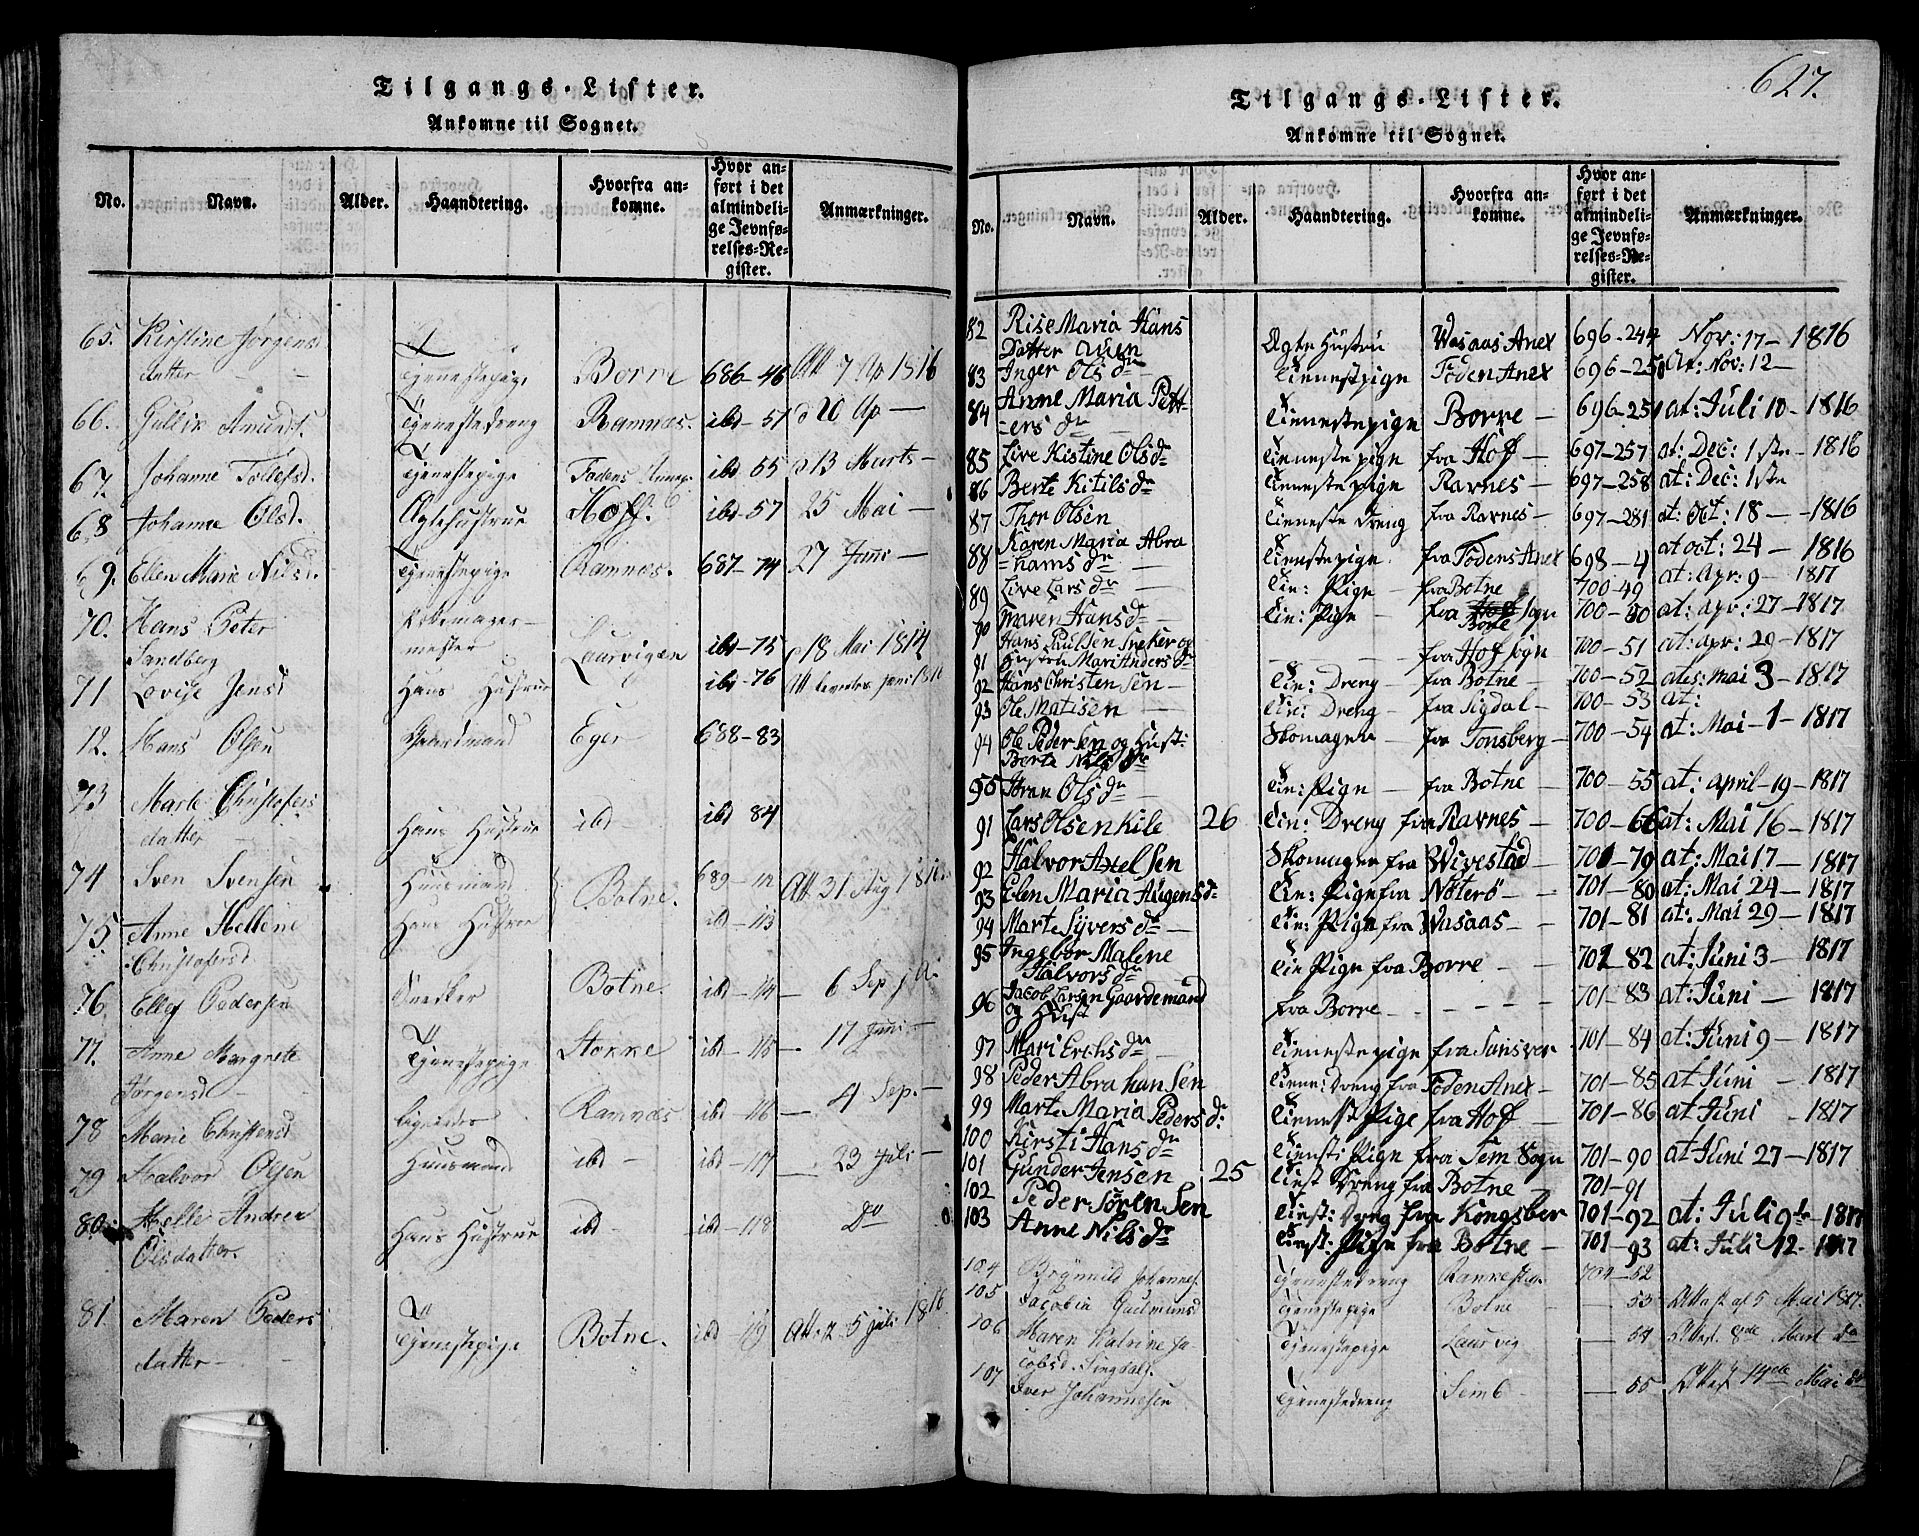 Tilgangs-Lister.
Ankomne til Sognet.
No. Navn. Alder. Haandtering. Hvorfra ankomne. Hvor anført i det almindelige Jevnførelses-Register. Anmærkninger.
65. Kirstine Jørgensdatter Tjenestepige Borre 686-46 Att 7 Ap 1816
66. Gullik Amunds. Tjenestedreng Ramnæs. ibd-51 d 20 Ap —
67. Johanne Tollefsd. Tjenestepige Fodens Annex ibd-55 d 13 Marts —
68 Johanne Olsd. Agtehustrue Hoff. ibd-57 25 Mai —
69. Ellen Marie Nilsd. Tjenestepige Ramnæs. 687-74 27 Juni —
70. Hans Peter Sandberg mester Laurvigen ibd-75 d 18 Mai 1814
71 Lovise Jensd Hans Hustrue ibd-76 Att Juni
72. Hans Olsen Gaardmand Eger 688-83
73 Marte Christofers
datter — Hans Hustrue ibd ibd 84
74 Sven Svensen Huusmand Botne. 689-112 Att 31 Aug 1816
75 Anne Hellene
Christofersd. Hans Hustrue ibd-113
76 Ellef Pedersen Snedker Botne. ibd-114 — 6 Sep
77. Anne Margrete
Jørgensd — Tjenestepige Stokke ibd-115 — 17 Juni —
78 Marie Christensd ligeledes Ramnæs ibd-116 — 4 Sep. —
79 Halvor Olsen Huusmand ibd — ibd-117 — 23 Juli —
80. Helle Andrea
Olsdatter. Hans Hustrue ibd — ibd-118 Do
81. Maren Peders
datter — Tjenestepige Botne. ibd 119 Att. 5 Juli 1816
627.
Tilgangs-Lister.
Ankomne til Sognet.
No. Navn. Alder. Haandtering. Hvorfra ankomne. Hvor anført i det almindelige Jevnførelses-Register. Anmærkninger.
82 Rise Maria Hans
Datter Auen Agte Hustru Wasaas Anex 696-244 Nov: 17 — 1816
83 Inger Olsdr Tienestpige Foden Anex 696-250 At: Nov: 12 —
84 Anne Maria Pett
=ers dr Tienestepige Borre — 696-251 at: Juli 10 — 1816
85 Live Kistine Olsdr Tieneste pige fra Hoff — 697-257 at: Dec: 1ste — 1816
86 Berte Kitilsdr Tieneste pige Ravnes — 697-258 at: Dec: 1ste
87 Thor Olsen Tieneste Dreng fra Ravnes — 697-281 at: Oct: 18 — 1816
88 Karen Maria Abra
=hams dr Tienestepige fra Fodens Anex 698-4 at oct: 24 — 1816
89 Live Larsdr Tin: Pige — fra Botne 700-49 at: Apr: 9 — 1817
90 Maren Hansdr — Tin: Pige — fra Borre sogn 700-50 at: apr: 27 — 1817
91 Hans Paulsen Sneker og
Hustru Mari Andersdr fra Hof sogn 700-51 at: apr: 29 — 1817
92 Hans Christensen — Tin: Dreng — fra Botne — 700-52 ates: mai 3 — 1817
93 Ole Matisen — Tin: Dreng — fra Sigdal — 700-53 at:
94 Ole Pedersen og Hust:
Berte Nilsdr Skomager — fra Tonsberg — 700-54 at: Mai — 1 — 1817
95 Olsdr — Tin: Pige — fra Botne — 700-55 at: april 19 — 1817
91 Lars Olsen Kile 26 Tin: Dreng fra Ravnes — 700-66 at: Mai 16 — 1817
92 Halvor Axelsen Skomager fra Wivestad — 701-79 at: Mai 17 — 1817
93 Elen Maria Augensdr Tin: Pige fra Noterø — 701-80 at: Mai 24 — 1817
94 Marte Syversdr — Tin: Pige fra Wasaas — 701-81 at: Mai 29 — 1817
95 Ingebor Malene
Halvorsdr Tin Pige fra Borre — 701-82 at: Juni 3 — 1817
96 Jacob Larsen Gaardemand
og Hust fra Borre — 701-83 at: Juni — 1817
97 Mari Erchsdr — Tieneste pige fra Sansver 701-84 at: Juni 9 — 1817
98 Peder Abrahansen Tiene: Dreng fra Foden Anex — 701-85 at Juni — 1817
99 Marte Maria Pedersdr: Tienest Pige fra Hoff — 701-86 at Juni — 1817
100 Kirsti Hansdr Tienst: Pige fra Sem Sogn 701-90 at Juni 27 — 1817
101 Gunder Jensen 25 Tienst Dreng fra Botne — 701-91
102 Peder Sørensen Tienst: Dreng fra Kongsber 701-92 at: Juli 9de — 1817
103 Anne Nilsdr Tienst: Pige fra Botne — 701-93 at: Juli 12 — 1817
104 Brynild Johannes. Tjenestedreng 704-52
105 Jacobin Gudmunsd Tjenestepige Botne — 53 Attest af 5 Mai 1817.
106 Maren Katrine Ja-
cobsd. Singdals. Tjenestepige Laurvig — 54 Attest. 8de Mart do
107 Iver Johannesen Tjenestedreng Semb — 55 Attest 14de Mai do